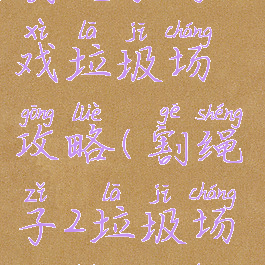 xì lā jī chǎng
戏垃圾场
gōng lüè gē shéng
攻略(割绳
zǐ lā jī chǎng
子2垃圾场